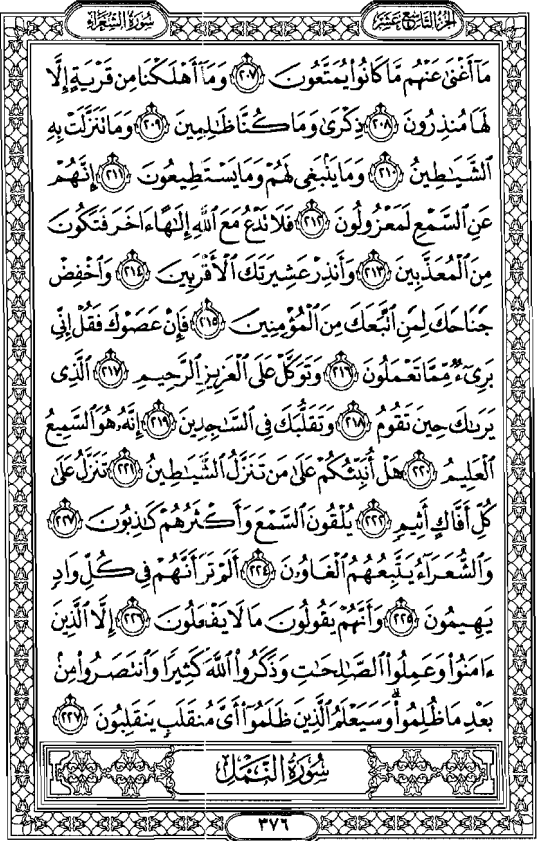 الجزء التاسع عشر سورة الشعراء
مَآ أَغْنَىٰ عَنْهُم مَّا كَانُوا۟ يُمَتَّعُونَ ٢٠٧ وَمَآ أَهْلَكْنَا مِن قَرْيَةٍ إِلَّا
لَهَا مُنذِرُونَ ٢٠٨ ذِكْرَىٰ وَمَا كُنَّا ظَٰلِمِينَ ٢٠٩ وَمَا تَنَزَّلَتْ بِهِ
ٱلشَّيَٰطِينُ ٢١٠ وَمَا يَنۢبَغِى لَهُمْ وَمَا يَسْتَطِيعُونَ ٢١١ إِنَّهُمْ
عَنِ ٱلسَّمْعِ لَمَعْزُولُونَ ٢١٢ فَلَا تَدْعُ مَعَ ٱللَّهِ إِلَٰهًا ءَاخَرَ فَتَكُونَ
مِنَ ٱلْمُعَذَّبِينَ ٢١٣ وَأَنذِرْ عَشِيرَتَكَ ٱلْأَقْرَبِينَ ٢١٤ وَٱخْفِضْ
جَنَاحَكَ لِمَنِ ٱتَّبَعَكَ مِنَ ٱلْمُؤْمِنِينَ ٢١٥ فَإِنْ عَصَوْكَ فَقُلْ إِنِّى
بَرِىٓءٌ مِّمَّا تَعْمَلُونَ ٢١٦ وَتَوَكَّلْ عَلَى ٱلْعَزِيزِ ٱلرَّحِيمِ ٢١٧ ٱلَّذِى
يَرَىٰكَ حِينَ تَقُومُ ٢١٨ وَتَقَلُّبَكَ فِى ٱلسَّٰجِدِينَ ٢١٩ إِنَّهُۥ هُوَ ٱلسَّمِيعُ
ٱلْعَلِيمُ ٢٢٠ هَلْ أُنَبِّئُكُمْ عَلَىٰ مَن تَنَزَّلُ ٱلشَّيَٰطِينُ ٢٢١ تَنَزَّلُ عَلَىٰ
كُلِّ أَفَّاكٍ أَثِيمٍ ٢٢٢ يُلْقُونَ ٱلسَّمْعَ وَأَكْثَرُهُمْ كَٰذِبُونَ ٢٢٣
وَٱلشُّعَرَآءُ يَتَّبِعُهُمُ ٱلْغَاوُۥنَ ٢٢٤ أَلَمْ تَرَ أَنَّهُمْ فِى كُلِّ وَادٍ
يَهِيمُونَ ٢٢٥ وَأَنَّهُمْ يَقُولُونَ مَا لَا يَفْعَلُونَ ٢٢٦ إِلَّا ٱلَّذِينَ
ءَامَنُوا۟ وَعَمِلُوا۟ ٱلصَّٰلِحَٰتِ وَذَكَرُوا۟ ٱللَّهَ كَثِيرًا وَٱنتَصَرُوا۟ مِنۢ
بَعْدِ مَا ظُلِمُوا۟ ۗ وَسَيَعْلَمُ ٱلَّذِينَ ظَلَمُوٓا۟ أَىَّ مُنقَلَبٍ يَنقَلِبُونَ ٢٢٧
سُورَةُ النَّمْلِ
٣٧٦